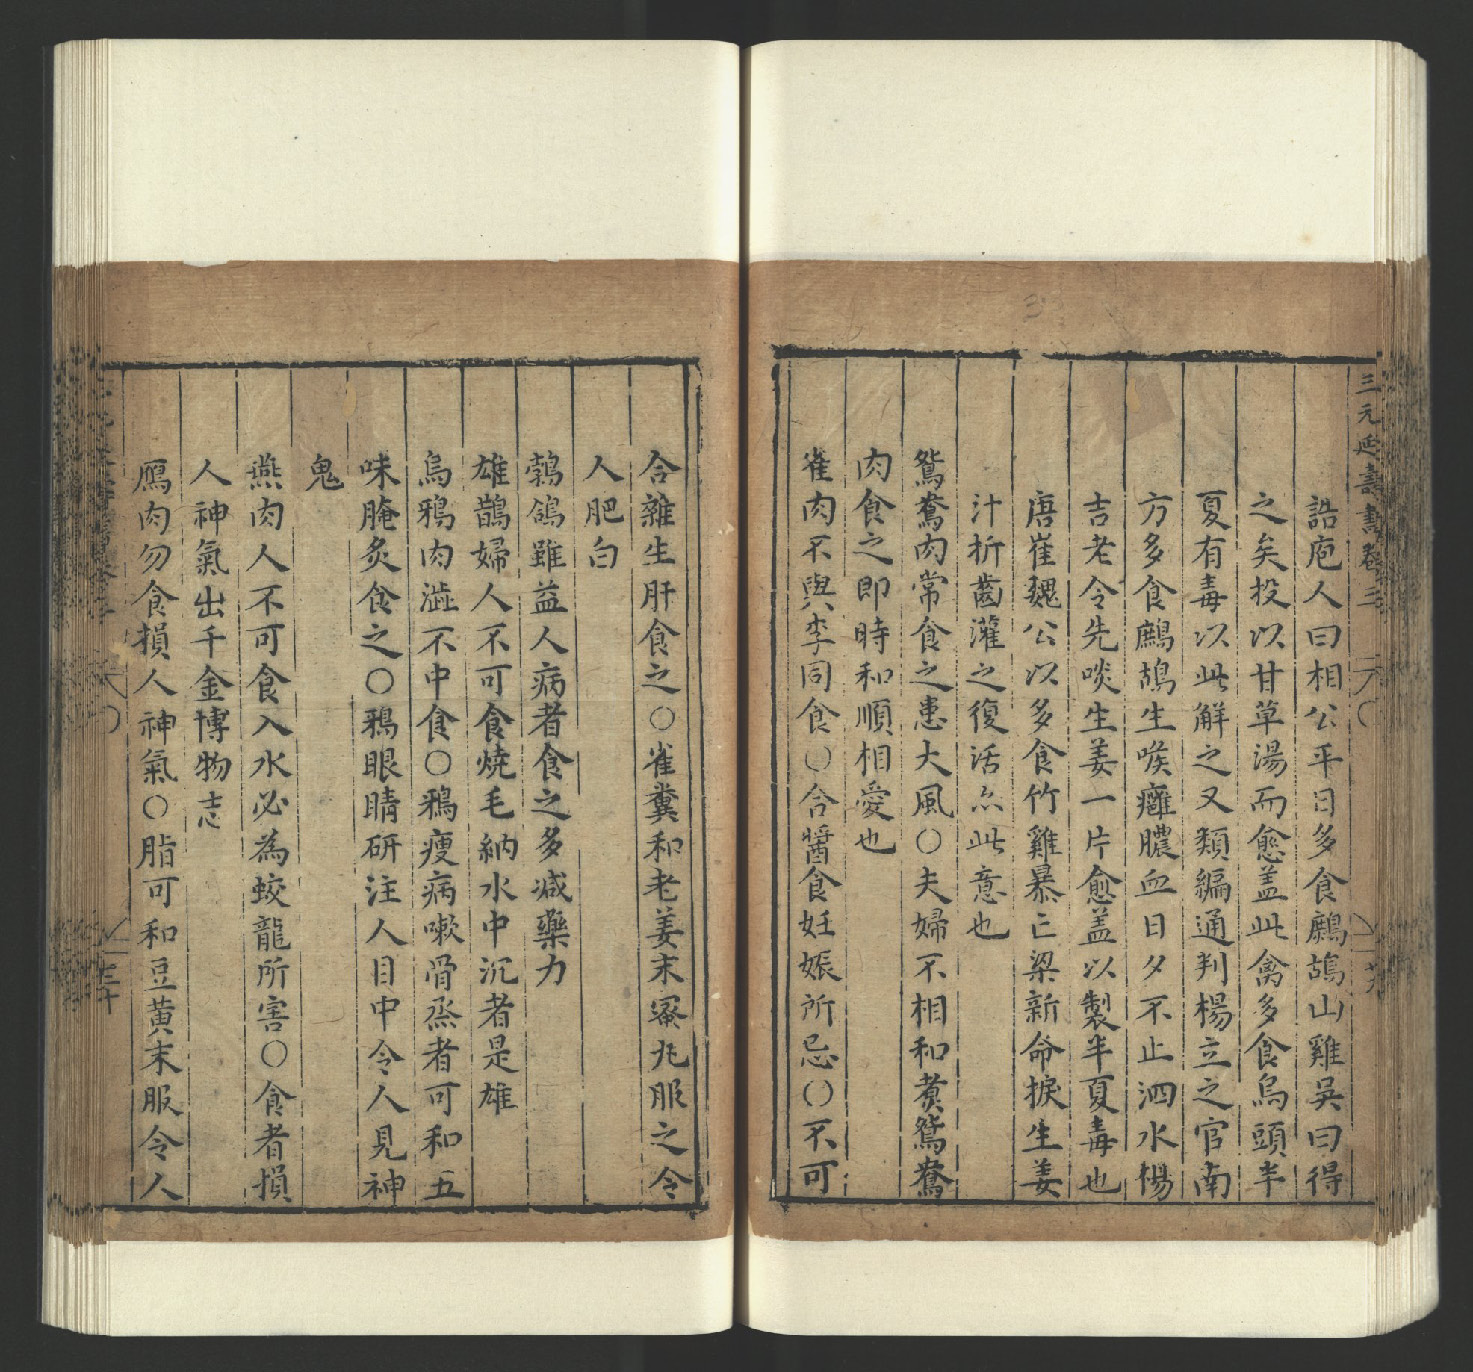 三元延壽書卷三
誥庖人曰相公平日多食鷓鴣山雞吳曰得
之矣投以甘草湯而愈盖此禽多食烏頭半
夏有毒以此解之又類編通判楊立之官南
方多食鷓鴣生喉癰膿血日夕不止泗水楊
吉老令先啖生姜一片愈盖以製半夏毒也
唐崔魏公以多食竹雞暴亡梁新命捩生姜
汁折齒灌之復活亦此意也
鴛鴦肉常食之患大風○夫婦不相和煑鴛鴦
肉食之即時和順相愛也
雀肉不與李同食○合醬食妊娠所忌○不可
合雜生肝食之○雀糞和老姜末蜜丸服之令
人肥白
鵓鴿雖益人病者食之多減藥力
雄鵲婦人不可食燒毛納水中沉者是雄
烏鴉肉澁不中食○鴉瘦病嗽骨烝者可和五
味腌炙食之○鴉眼睛研注人目中令人見神
鬼
燕肉人不可食入水必為蛟龍所害○食者損
人神氣出千金博物志
鴈肉勿食損人神氣○脂可和豆黄末服令人